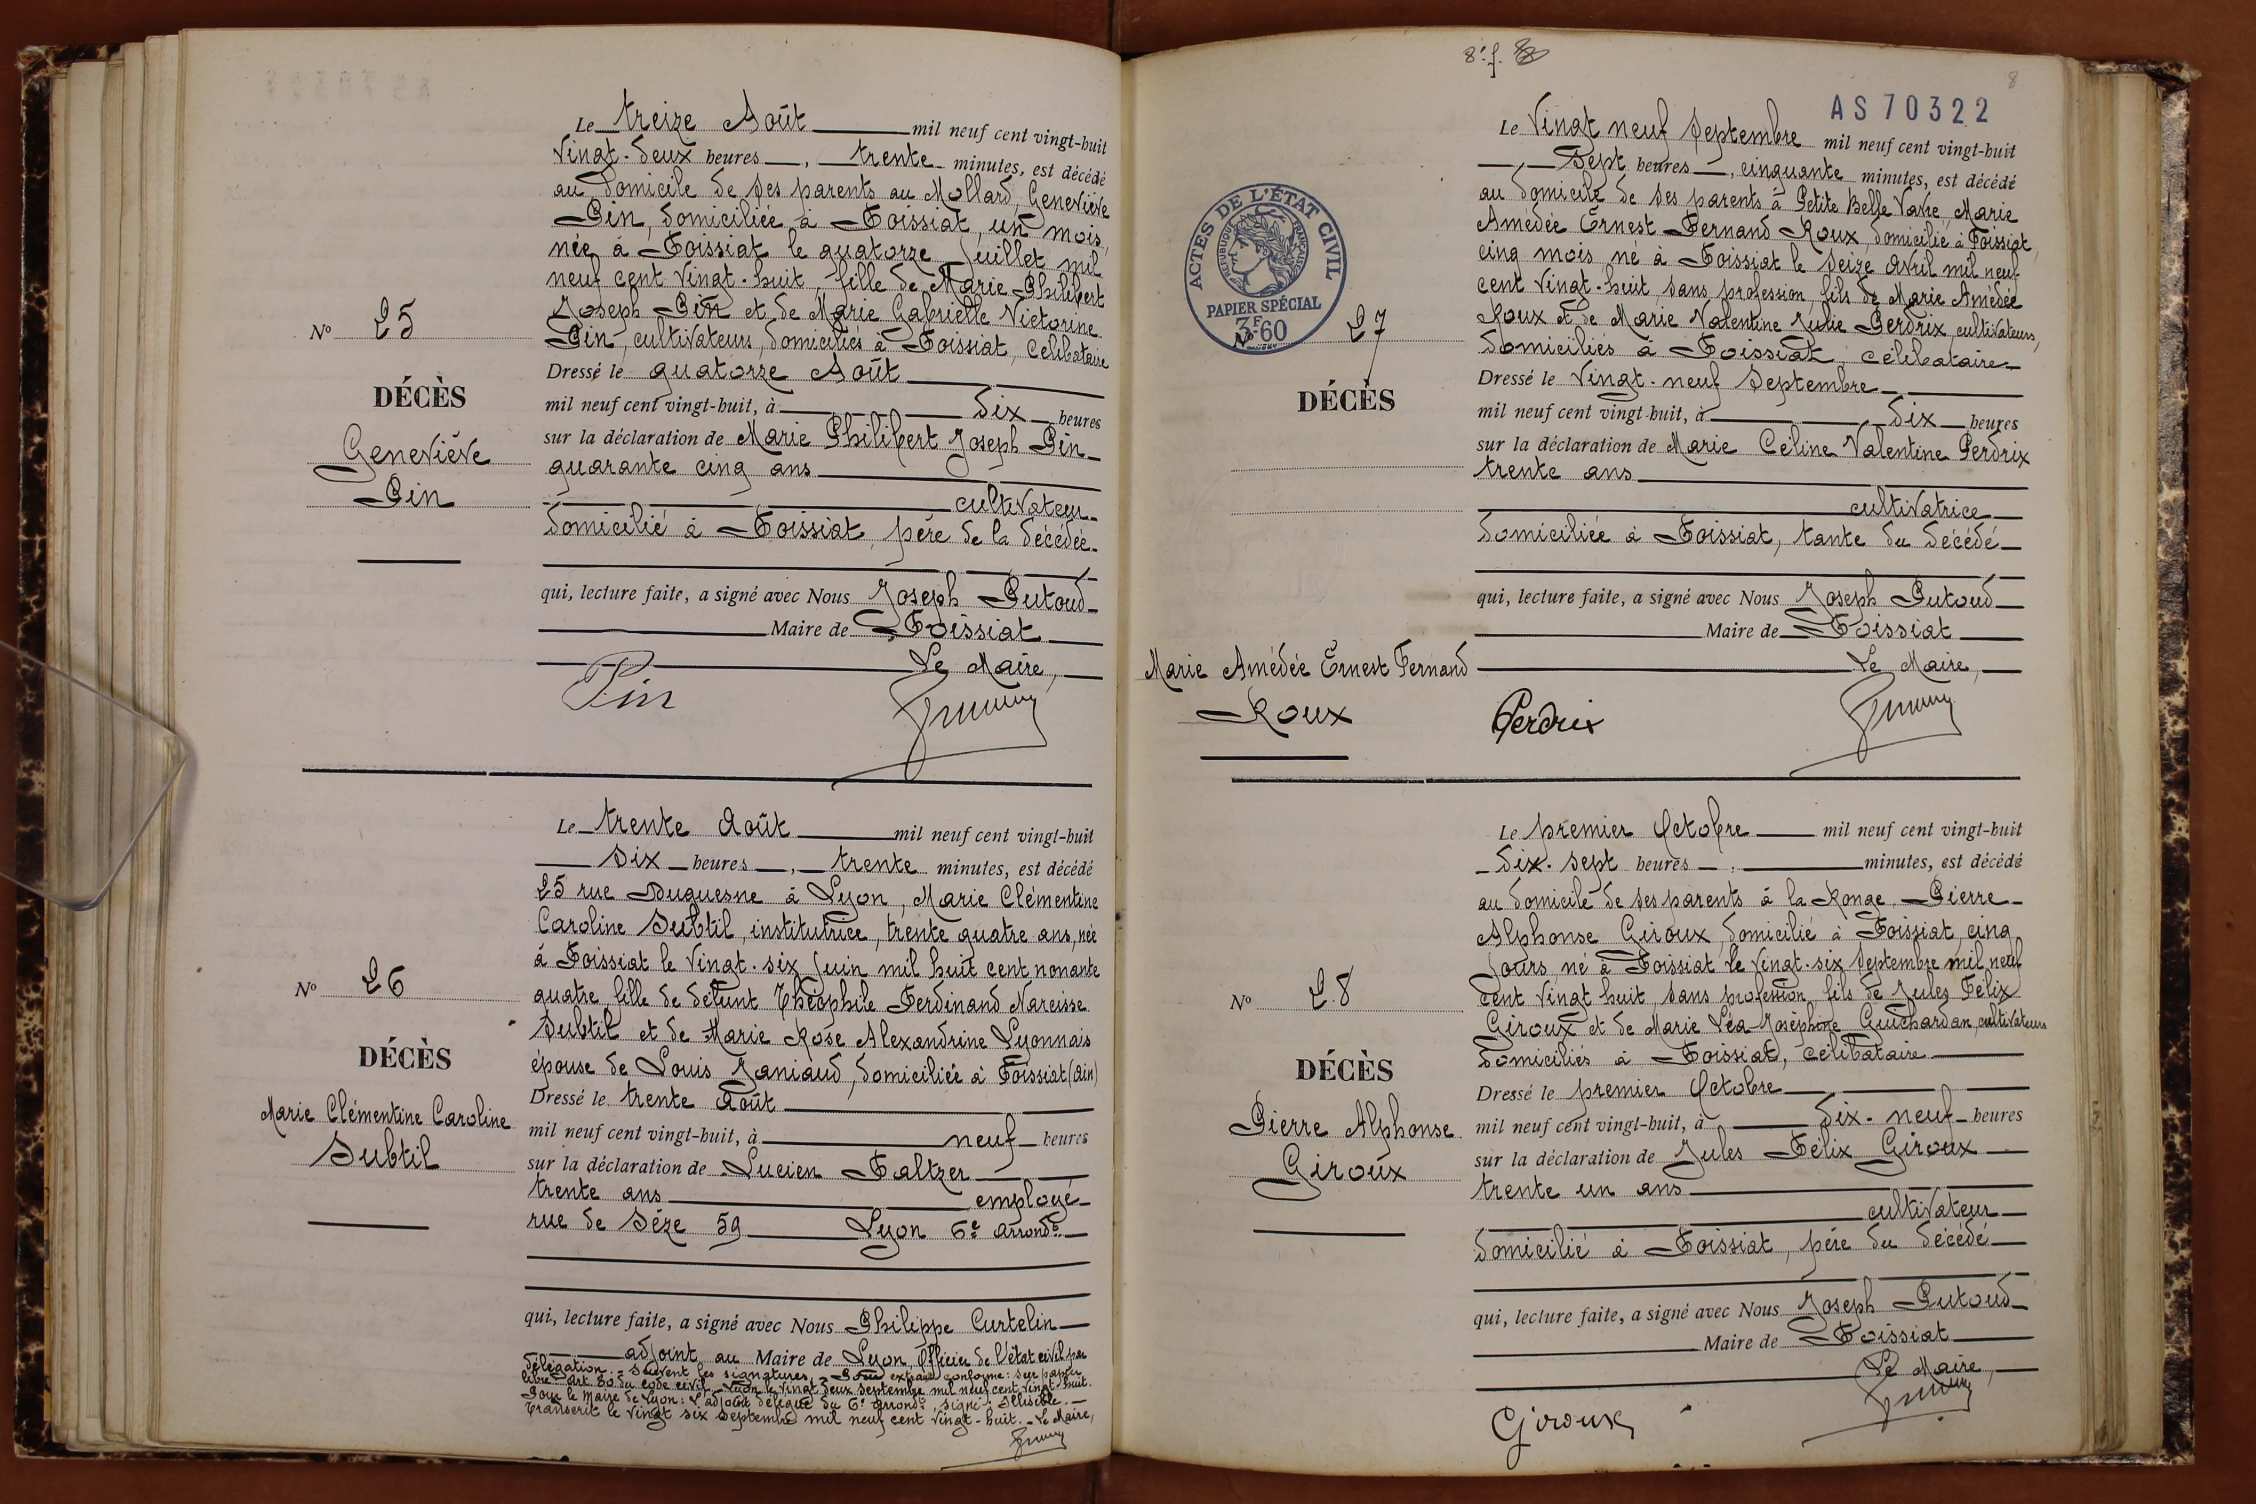 Le treize Août mil neuf cent vingt-huit
vingt-deux heures, trente minutes, est décédé
au domicile de ses parents au Mollard, Geneviève
Pin, domiciliée à Foissiat, un mois,
née à Foissiat le quatorze Juillet mil
neuf cent vingt-huit, fille de Marie Philibert
Joseph Pin et de Marie Gabrielle Victorine
Pin, cultivateurs, domiciliés à Foissiat, célibataire
Nº 25
DÉCÈS
Geneviève
Pin
Dressé le quatorze Août
mil neuf cent vingt-huit, à dix heures
sur la déclaration de Marie Philibert Joseph Pin
quarante cinq ans
cultivateur
domicilié à Foissiat, père de la décédée.
qui, lecture faite, a signé avec Nous Joseph Putoud
Maire de Foissiat
Le Maire,
Pin
Le trente Août mil neuf cent vingt-huit
six heures, trente minutes, est décédé
25 rue Duguesne à Lyon, Marie Clémentine
Caroline Subtil, institutrice, trente quatre ans, née
à Foissiat le vingt-six Juin mil huit cent nonante
quatre fille de défunt Théophile Ferdinand Narcisse
Subtil et de Marie Rose Alexandrine Lyonnais
épouse de Louis Janiaud, domiciliée à Foissiat (Ain)
Nº 26
DÉCÈS
Marie Clémentine Caroline
Subtil
Dressé le trente Août
mil neuf cent vingt-huit, à neuf heures
sur la déclaration de Lucien Faltzer
trente ans employé
rue de Sèze 59 Lyon 6e arrondt.
qui, lecture faite, a signé avec Nous Philippe Curtelin
adjoint au Maire de Lyon, Officier de l'état civil par
délégation. Suivent les signatures. Pour extrait conforme: sur papier
libre Art. 80 du code civil. Lyon le vingt deux septembre mil neuf cent vingt-huit.
Pour le Maire de Lyon: L'adjoint délégué du 6e arrondt, signé: Illisible.
Transcrit le vingt six septembre mil neuf cent vingt-huit. Le Maire,
8e f. 8
8
AS70322
ACTES DE L'ÉTAT CIVIL
RÉPUBLIQUE FRANÇAISE
PAPIER SPÉCIAL
3F60
Le vingt neuf septembre mil neuf cent vingt-huit
sept heures, cinquante minutes, est décédé
au domicile de ses parents à Petite Belle Vavre, Marie
Amédée Ernest Fernand Roux, domicilié à Foissiat,
cinq mois, né à Foissiat le seize Avril mil neuf
cent vingt-huit sans profession, fils de Marie Amédée
Roux et de Marie Valentine Julie Perdrix, cultivateurs,
domiciliés à Foissiat, célibataire
Nº 27
DÉCÈS
Dressé le vingt-neuf septembre
mil neuf cent vingt-huit, à dix heures
sur la déclaration de Marie Céline Valentine Perdrix
trente ans
cultivatrice
domiciliée à Foissiat, tante du décédé
qui, lecture faite, a signé avec Nous Joseph Putoud
Maire de Foissiat
Le Maire,
Marie Amédée Ernest Fernand
Roux
Perdrix
Le premier Octobre mil neuf cent vingt-huit
dix-sept heures, minutes, est décédé
au domicile de ses parents à la Ronge, Pierre
Alphonse Giroux, domicilié à Foissiat, cinq
jours, né à Foissiat le vingt-six septembre mil neuf
cent vingt huit, sans profession, fils de Jules Félix
Giroux et de Marie Léa Joséphine Guichardan, cultivateurs
domiciliés à Foissiat, célibataire
Nº 28
DÉCÈS
Pierre Alphonse
Giroux
Dressé le premier Octobre
mil neuf cent vingt-huit, à dix-neuf heures
sur la déclaration de Jules Félix Giroux
trente un ans
cultivateur
domicilié à Foissiat, père du décédé
qui, lecture faite, a signé avec Nous Joseph Putoud
Maire de Foissiat
Le Maire,
Giroux